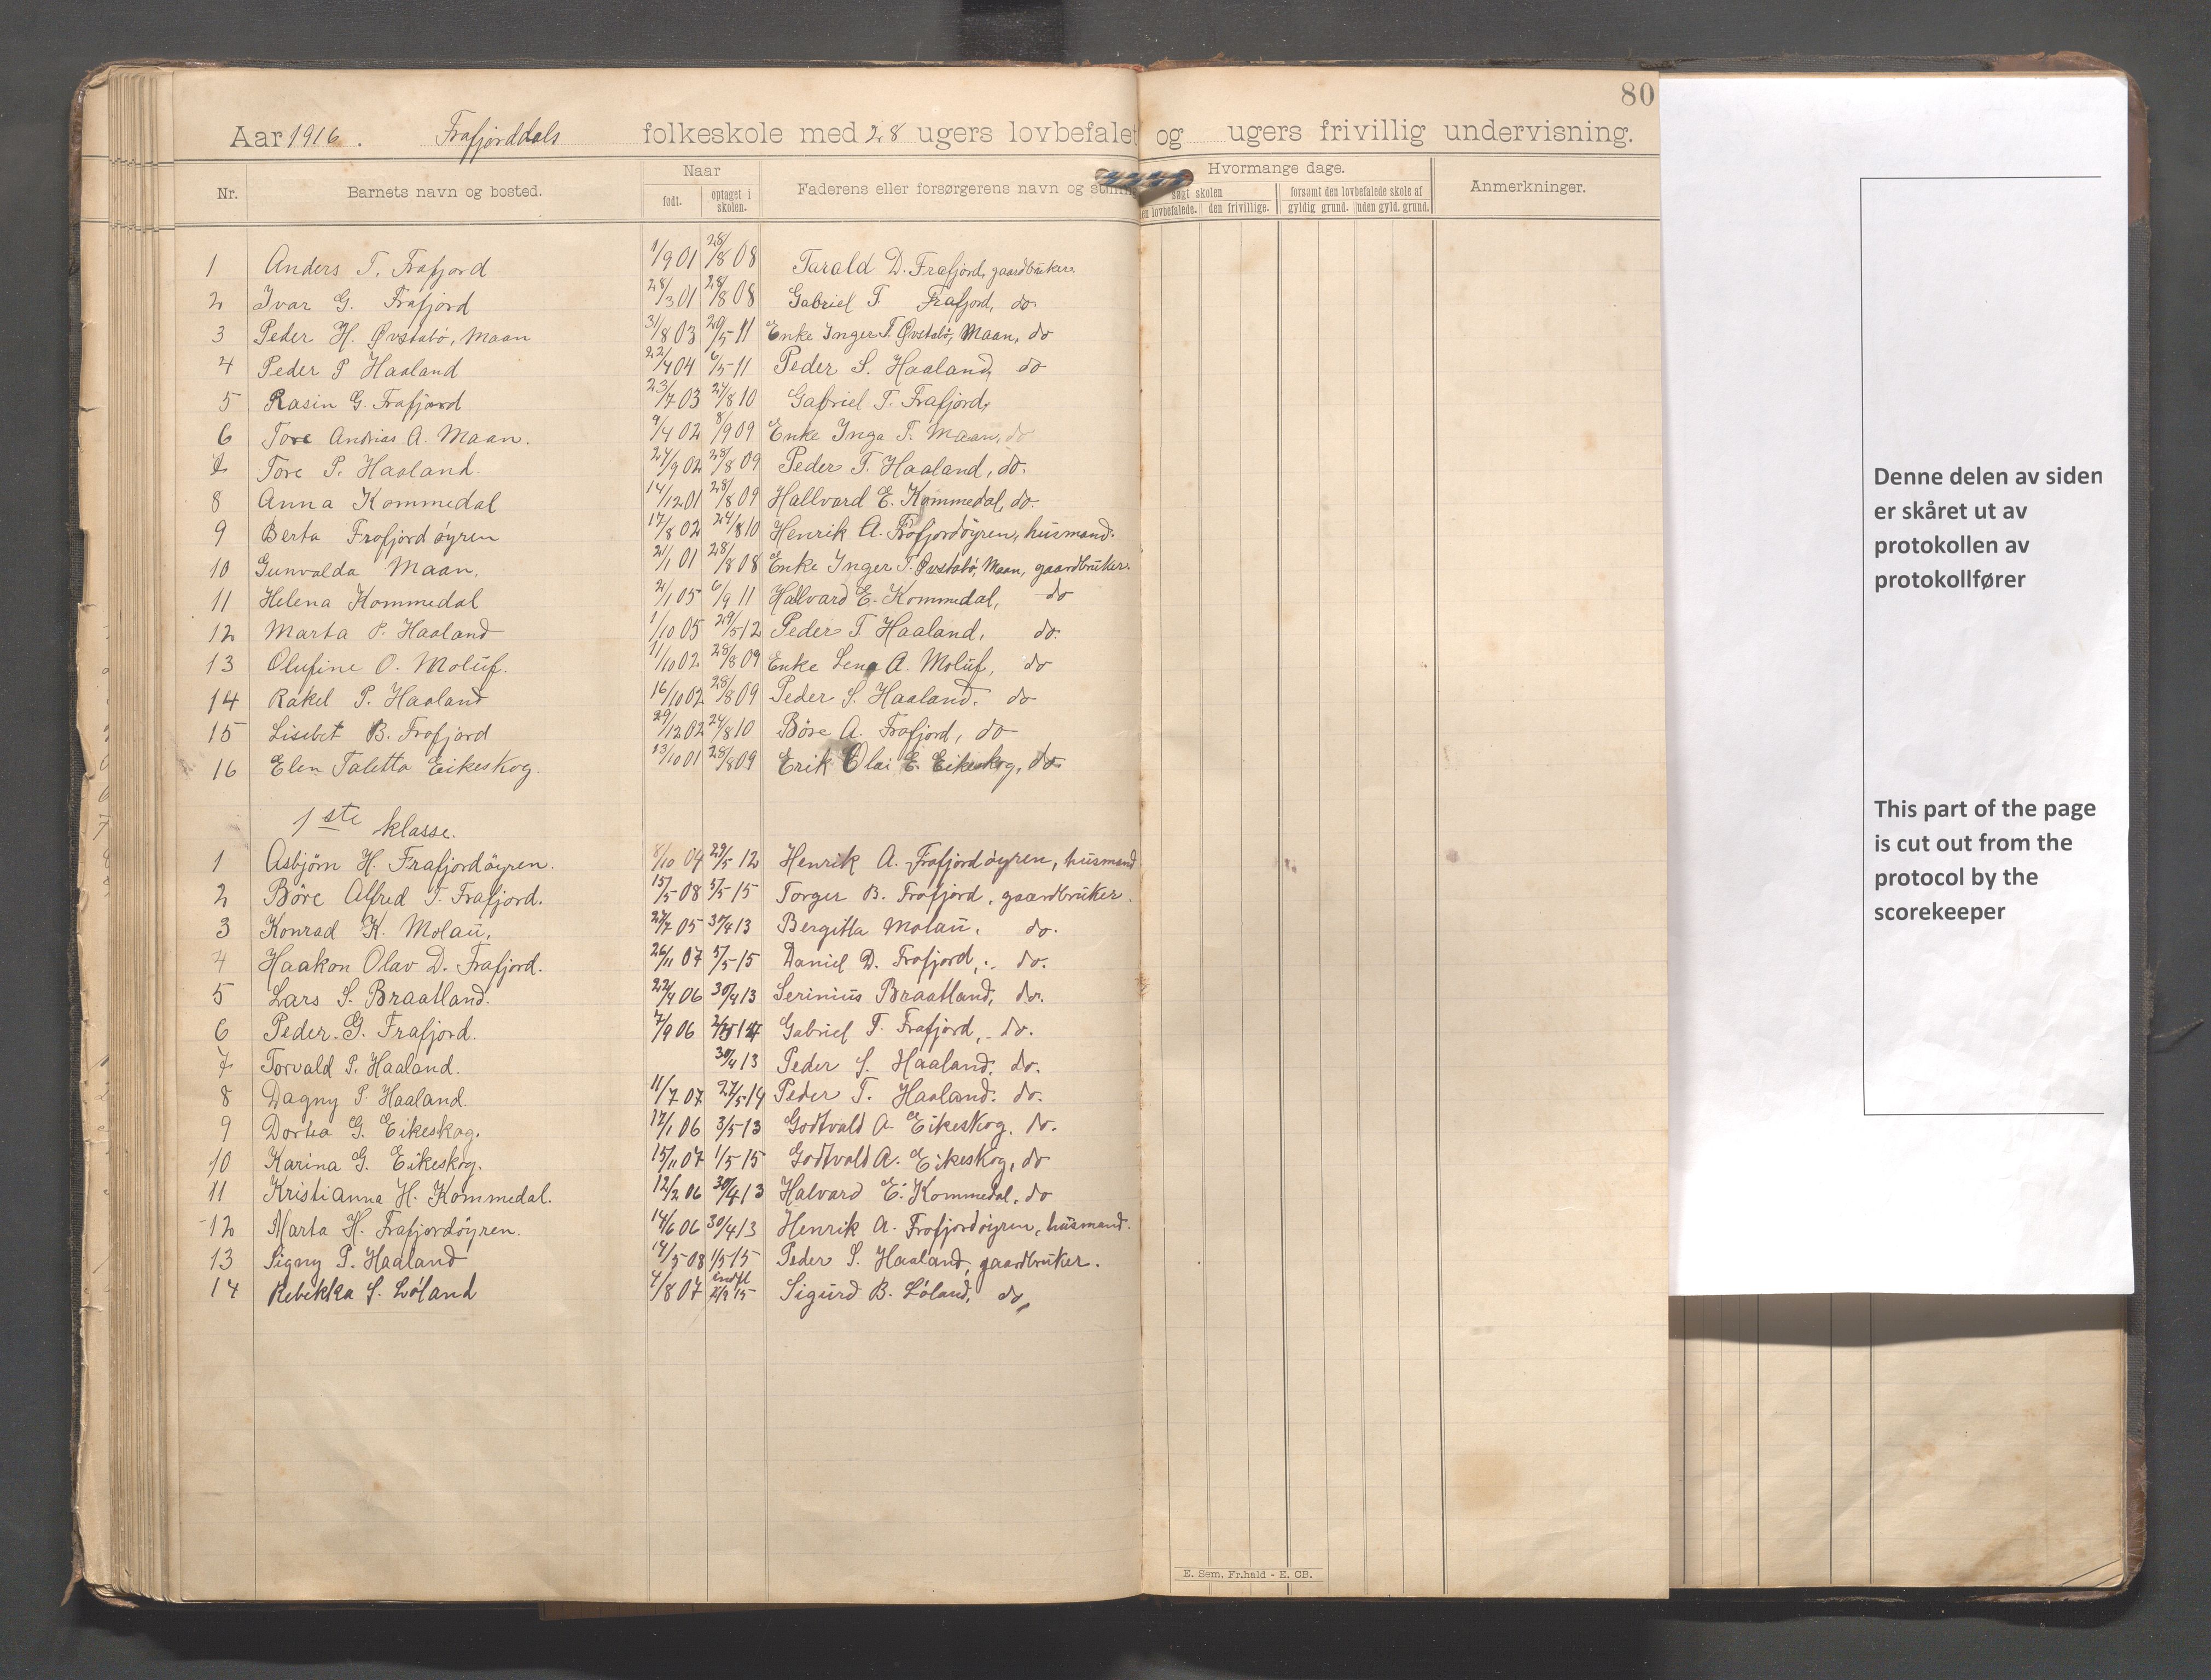 80
Aar 1916. Frafjorddals folkeskole med 28 ugers lovbefalet og ugers frivillig undervisning.
Nr. Barnets navn og bosted. Naar Faderens eller forsørgerens navn og Hvormange dage. Anmerkninger.
født. optaget i skolen. søgt skolen forsømt den lovbefalede skole af
lovbefalede. den frivillige. gyldig grund. uden gyld. grund.
1 Anders T. Frafjord 1/9 01 28/8 08 Tarald D. Frafjord, gaardbruker.
2 Ivar G. Frafjord 28/3 01 28/8 08 Gabriel T. Frafjord, do
3 Peder H. Øvstabö, Maan 31/8 03 20/5 11 Enke Inger T. Øvstabö, Maan, do
4 Peder P Haaland 22/4 04 6/5 11 Peder S. Haaland, do
5 Rasin G. Frafjord 23/7 03 24/8 10 Gabriel T. Frafjord,
6 Tore Andrias A. Maan. 9/4 02 8/9 09 Enke Inga T. Maan, do
7 Tore P. Haaland. 24/9 02 28/8 09 Peder T. Haaland, do.
8 Anna Kommedal 14/12 01 28/8 09 Hallvard E. Kommedal, do.
9 Berta Frafjordöyren 17/8 02 24/8 10 Henrik A. Frafjordöyren, husmand.
10 Gunvalda Maan. 2/1 01 28/8 08 Enke Inger T. Øvstabö, Maan, gaardbruker.
11 Helena Kommedal 2/1 05 6/9 11 Hallvard E. Kommedal, do
12 Marta P. Haaland 1/10 05 29/5 12 Peder T Haaland, do.
13 Olufine O. Moluf. 11/10 02 28/8 09 Enke Lena A. Moluf, do
14 Rakel P. Haaland 16/10 02 28/8 09 Peder S. Haaland. do
15 Lisibet B. Frafjord 29/12 02 24/8 10 Böre A. Frafjord, do
16 Elen Taletta Eikeskog. 13/10 01 28/8 09 Erik Olai E. Eikeskog, do.
1ste klasse.
1 Asbjörn H. Frafjordöyren. 8/10 04 29/5 12 Henrik A. Frafjordöyren, husmand
2 Böre Alfred T. Frafjord. 15/5 08 5/5 15 Torger B. Frafjord, gaardbruker.
3 Konrad K. Molau. 27/7 05 30/4 13 Bergitta Molau. do.
4 Haakon Olav D. Frafjord. 26/11 07 5/5 15 Daniel D. Frafjord, do.
5 Lars S. Braatland. 22/4 06 30/4 13 Serinius Braatland, do.
6 Peder. G. Frafjord. 7/9 06 Gabriel T. Frafjord, do.
7 Torvald P. Haaland. 30/4 13 Peder S. Haaland. do.
8 Dagny P. Haaland. 11/7 07 27/5 14 Peder T. Haaland. do.
9 Dortea G. Eikeskog. 12/1 06 3/5 13 Godtvald A. Eikeskog. do.
10 Karina G. Eikeskog. 15/11 07 1/5 15 Godtvald A. Eikeskog, do
11 Kristianna H. Kommedal. 12/2 06 30/4 13 Halvard E. Kommedal, do
12 Marta H. Frafjordöyren. 14/6 06 30/4 13 Henrik A. Frafjordöyren, husmand.
13 Signy P. Haaland 14/5 08 1/5 15 Peder S. Haaland, gaardbruker.
14 Rebekka S. Löland 4/8 07 indfl 2/9 15 Sigurd B. Löland, do
E. Sem, Fr.hald - E. CB.
Denne delen av siden
er skåret ut av
protokollen av
protokollfører
This part of the page
is cut out from the
protocol by the
scorekeeper